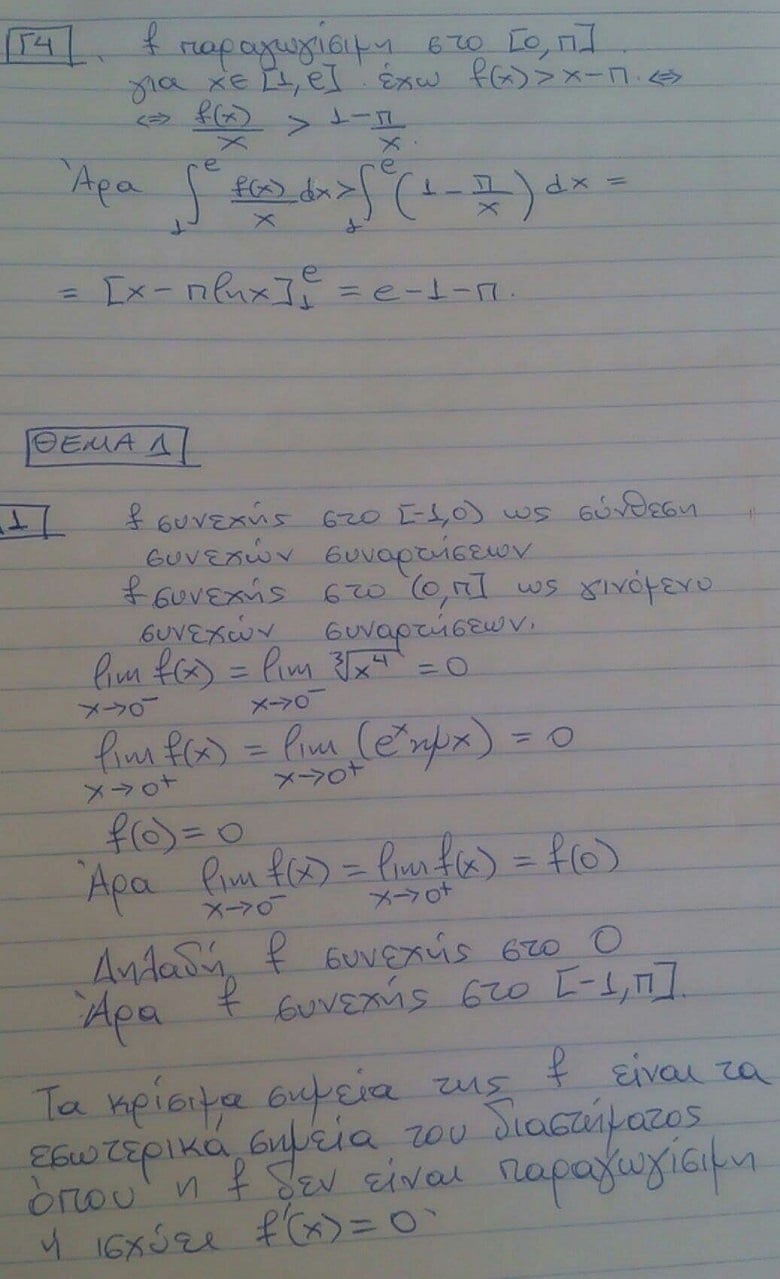 Γ4 f παραγωγίσιμη στο [0,π]
για x∈[1,e] έχω f(x)>x-π ⇔
⇔ f(x)/x > 1-π/x.
Άρα ∫₁ᵉ f(x)/x dx > ∫₁ᵉ (1 - π/x) dx =
= [x - πlnx]₁ᵉ = e-1-π.
ΘΕΜΑ Δ
Δ1 f συνεχής στο [-1,0) ως σύνθεση
συνεχών συναρτήσεων
f συνεχής στο (0,π] ως γινόμενο
συνεχών συναρτήσεων.
lim f(x) = lim ∛x⁴ = 0
x→0⁻ x→0⁻
lim f(x) = lim (eˣημx) = 0
x→0⁺ x→0⁺
f(0)=0
Άρα lim f(x) = lim f(x) = f(0)
x→0⁻ x→0⁺
Δηλαδή f συνεχής στο 0
Άρα f συνεχής στο [-1,π].
Τα κρίσιμα σημεία της f είναι τα
εσωτερικά σημεία του διαστήματος
όπου η f δεν είναι παραγωγίσιμη
ή ισχύει f'(x)=0